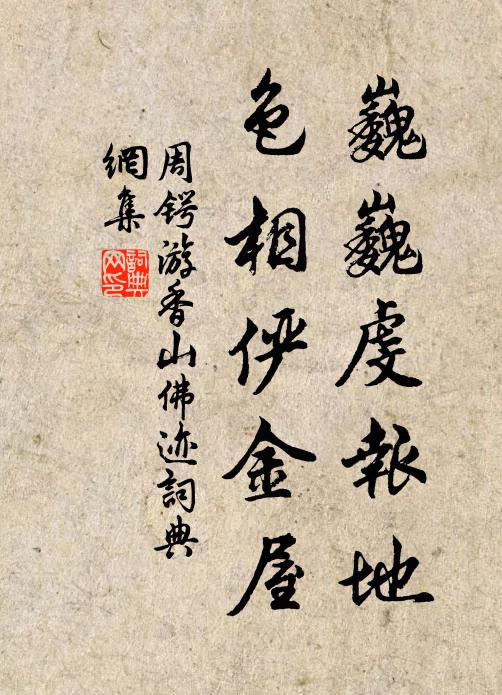 巍巍虔報地
色相俨金屋
周锷游香山佛迹詞典
網集
詞典
网印